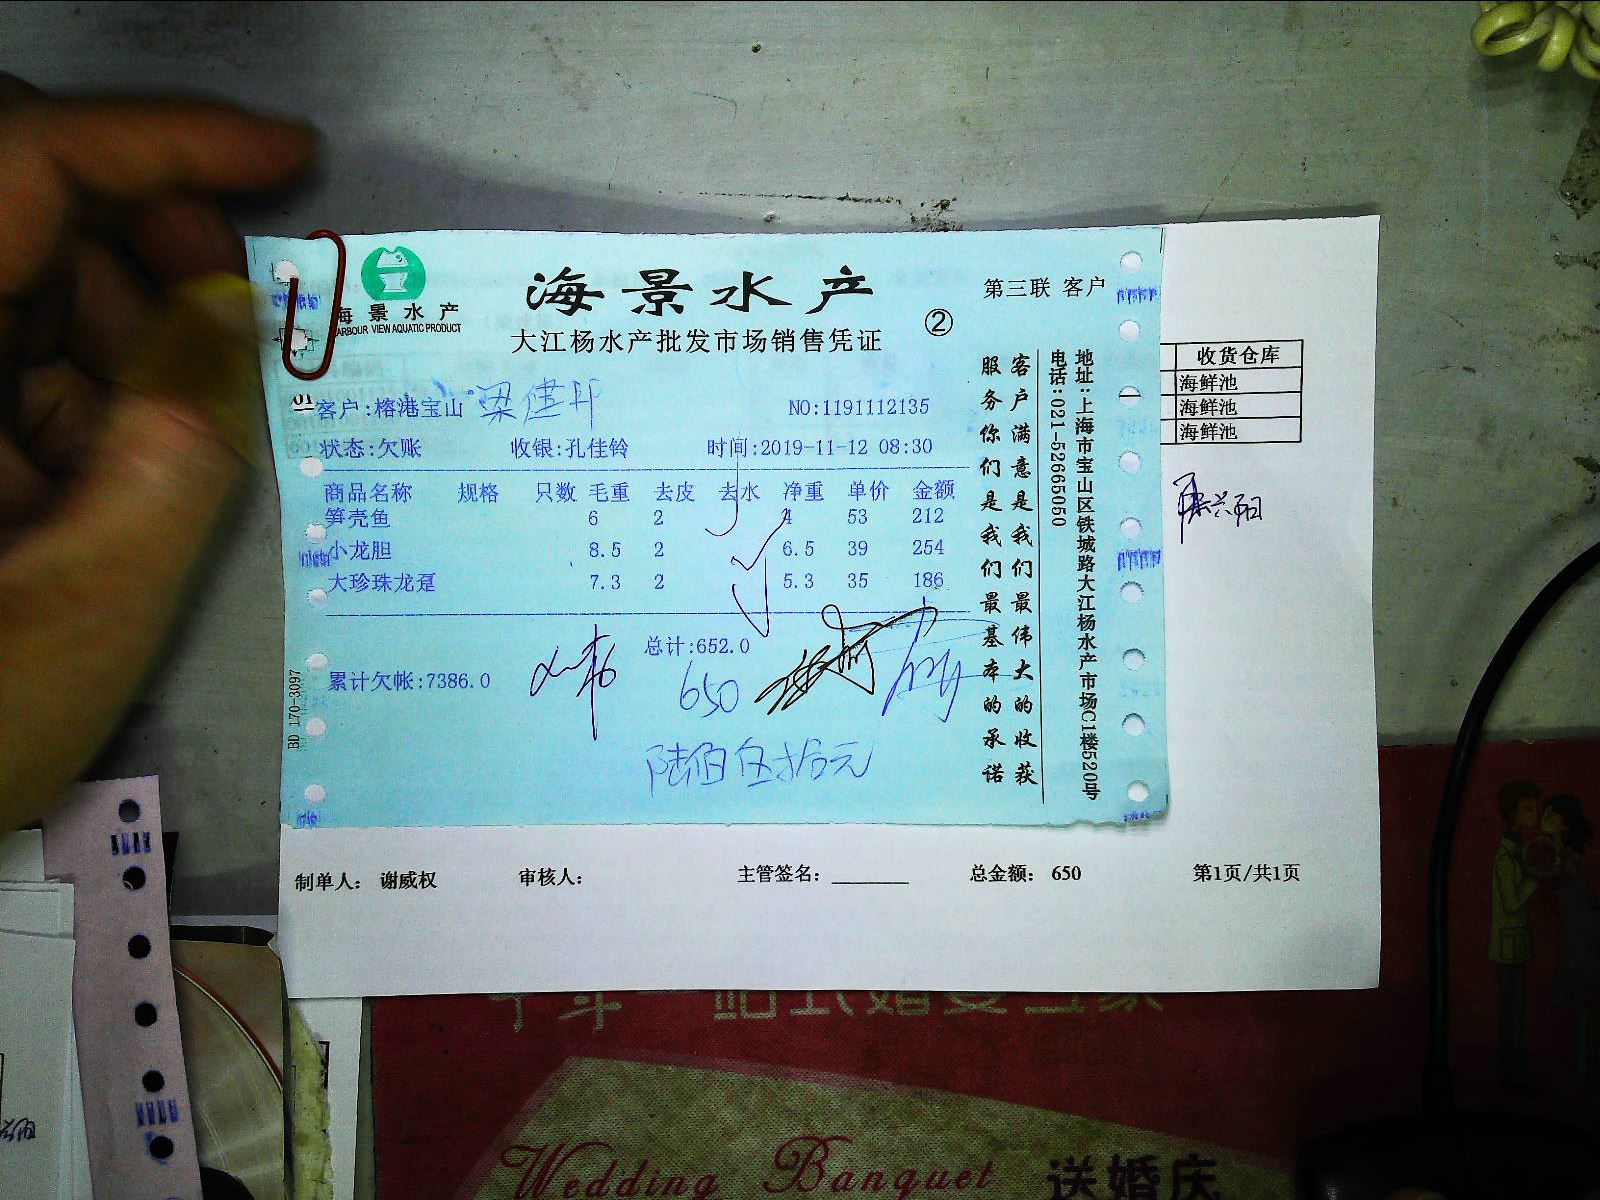 海景水产
HARBOUR VIEW AQUATIC PRODUCT
海景水产
大江杨水产批发市场销售凭证
②
第三联 客户
客户:榕港宝山
NO:1191112135
状态:欠账 收银:孔佳铃 时间:2019-11-12 08:30
商品名称 规格 只数 毛重 去皮 去水 净重 单价 金额
笋壳鱼 6 2 4 53 212
小龙胆 8.5 2 6.5 39 254
大珍珠龙趸 7.3 2 5.3 35 186
总计:652.0
累计欠帐:7386.0
650
陆佰伍拾元
客户满意是我们最伟大的收获
服务你们是我们最基本的承诺
地址:上海市宝山区铁城路大江杨水产市场C1楼520号
电话:021-52665050
BD 170-3097
收货仓库
海鲜池
海鲜池
海鲜池
制单人: 谢威权 审核人: 主管签名: 总金额: 650 第1页/共1页
Wedding Banquet 送婚庆